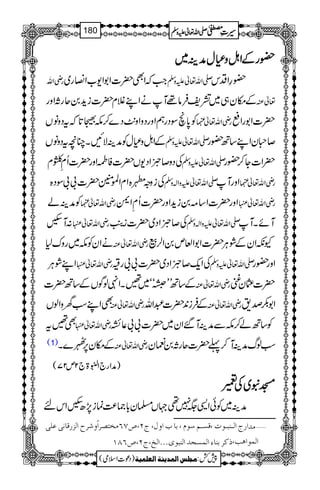 سیرتِ مصطفیٰ صلی اللہ تعالیٰ علیہ وسلم 180
حضور کے اہل و عیال مدینہ میں
حضورِ اقدس صلی اللہ تعالیٰ علیہ وسلم جب کہ ابھی حضرت ابو ایوب انصاری رضی اللہ
تعالیٰ عنہ کے مکان ہی میں تشریف فرما تھے آپ نے اپنے غلام حضرت زید بن حارثہ اور
حضرت ابو رافع رضی اللہ تعالیٰ عنہما کو پانچ سو درہم اور دو اونٹ دے کر مکہ بھیجا تاکہ یہ دونوں
صاحبان اپنے ساتھ حضور صلی اللہ تعالیٰ علیہ وسلم کے اہل و عیال کو مدینہ لائیں۔ چنانچہ یہ دونوں
حضرات جا کر حضور صلی اللہ تعالیٰ علیہ وسلم کی دو صاحبزادیوں حضرت فاطمہ اور حضرت اُم کلثوم
رضی اللہ تعالیٰ عنہما اور آپ صلی اللہ تعالیٰ علیہ والہ وسلم کی زوجہ مطہرہ ام المؤمنین حضرت بی بی سودہ
رضی اللہ تعالیٰ عنہا اور حضرت اسامہ بن زید اور حضرت اُم ایمن رضی اللہ تعالیٰ عنہم کو مدینہ لے
آئے۔ آپ صلی اللہ تعالیٰ علیہ والہ وسلم کی صاحبزادی حضرت زینب رضی اللہ تعالیٰ عنہا نہ آسکیں
کیونکہ ان کے شوہر حضرت ابو العاص بن الربیع رضی اللہ تعالیٰ عنہ نے ان کو مکہ میں روک لیا
اور حضور صلی اللہ تعالیٰ علیہ وسلم کی ایک صاحبزادی حضرت بی بی رقیہ رضی اللہ تعالیٰ عنہا اپنے شوہر
حضرت عثمان غنی رضی اللہ تعالیٰ عنہ کے ساتھ ’’حبشہ‘‘ میں تھیں۔ انہی لوگوں کے ساتھ حضرت
ابوبکر صدیق رضی اللہ تعالیٰ عنہ کے فرزند حضرت عبداللہ رضی اللہ تعالیٰ عنہ بھی اپنے سب گھر والوں
کو ساتھ لے کر مکہ سے مدینہ آ گئے ان میں حضرت بی بی عائشہ رضی اللہ تعالیٰ عنہا بھی تھیں یہ
سب لوگ مدینہ آ کر پہلے حضرت حارثہ بن نعمان رضی اللہ تعالیٰ عنہ کے مکان پر ٹھہرے۔ (1)
(مدارج النبوۃ ج ۲ ص ۷۲)
مسجد نبوی کی تعمیر
مدینہ میں کوئی ایسی جگہ نہیں تھی جہاں مسلمان باجماعت نماز پڑھ سکیں اس لئے
......مدارج النبوت، قسم سوم، باب اول، ج۲، ص۶۷ مختصراً و شرح الزرقانی علی
المواہب، ذکر بناء المسجد النبوی...الخ، ج۲، ص۱۸۶
پیش کش: مجلس المدینة العلمیة (دعوتِ اسلامی)